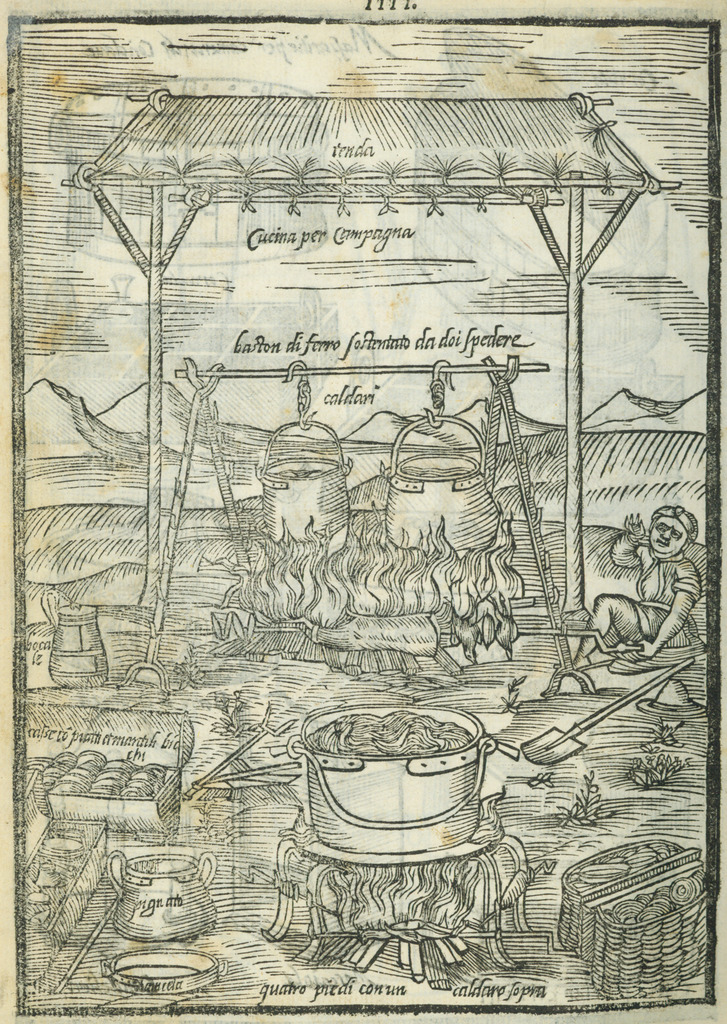 IIII.
tenda
Cucina per Campagna
baston di ferro sostentato da doi spedere
caldari
bocale
piatti et mantili bichi
pignato
quatro piedi con un caldaro sopra